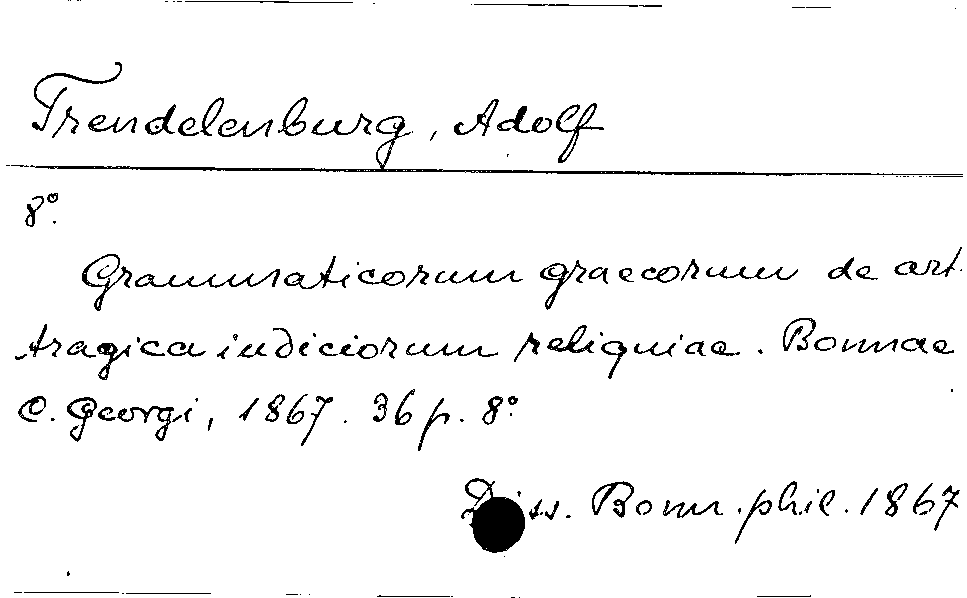 Trendelenburg, Adolf
8°.
Grammaticorum graecorum de art
tragica iudiciorum reliquiae. Bonnae
C. Georgi, 1867. 36 p. 8°
Diss. Bonn. phil. 1867